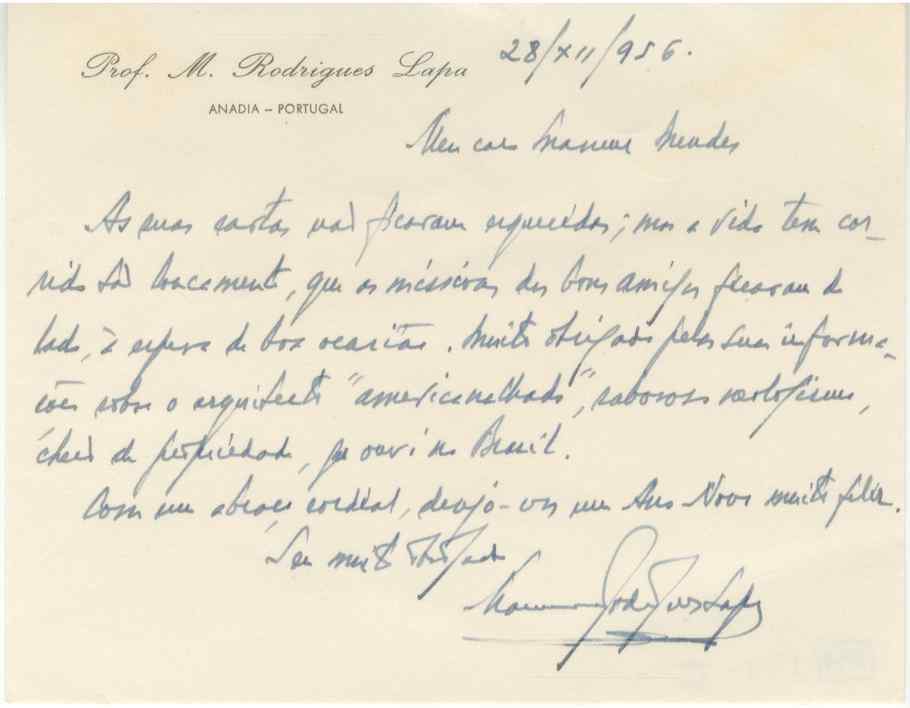 Prof. M. Rodrigues Lapa
ANADIA – PORTUGAL
28/XII/956.
Meu caro Manuel Mendes
As suas cartas não ficaram esquecidas; mas a vida tem cor-
rido tão loucamente, que as missivas dos bons amigos ficaram de
lado, à espera de boa ocasião. Muito obrigado pelas suas informa-
ções sobre o arquitecto "americanalhado", saboroso neologismo,
cheio de propriedade, que ouvi no Brasil.
Com um abraço cordial, desejo-vos um Ano Novo muito feliz.
Seu muito obrigado
Manuel Rodrigues Lapa